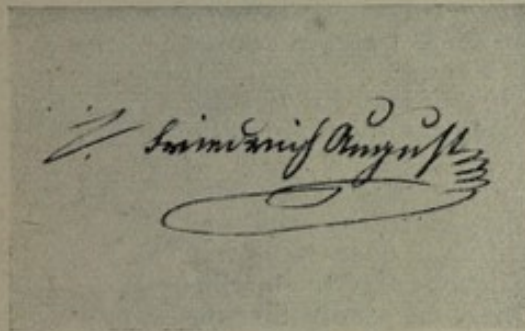 Friedrich August